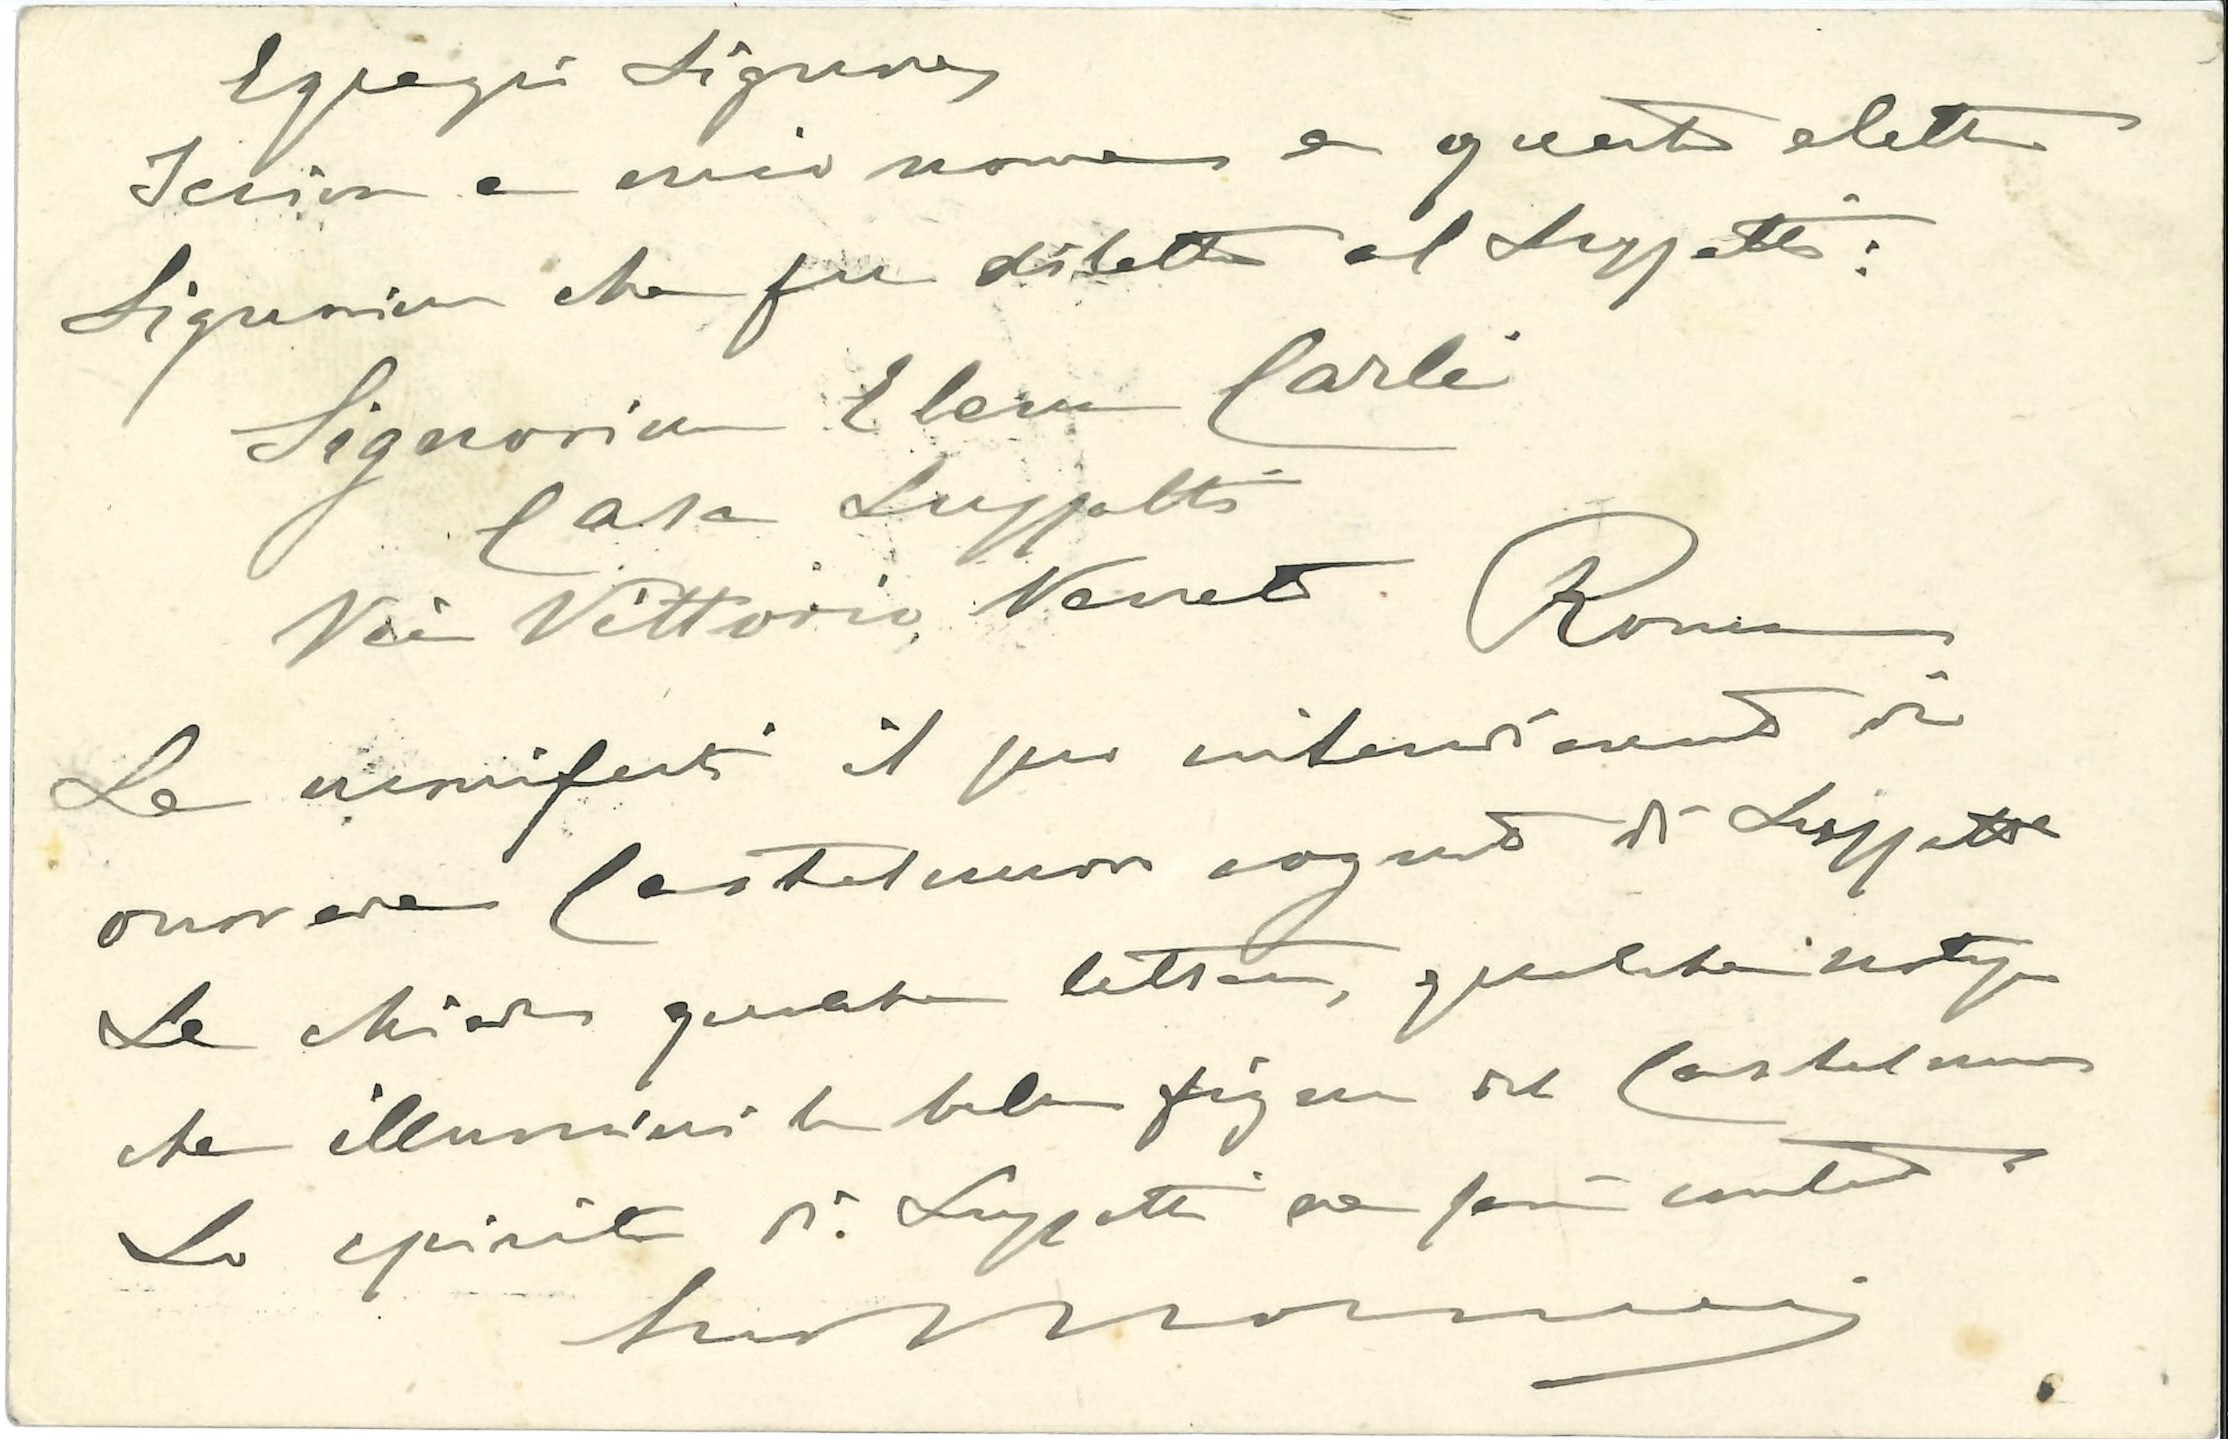 Egregi Signori
Scriva a mio nome a questa eletta
Signorina che fu diletta al Luzzatti:
Signorina Elena Carli
Casa Luzzatti
Via Vittorio Veneto Roma
Le manifesti il suo intendimento di
onorare Castelnuovo cognato di Luzzatti e
Le chieda qualche lettera, qualche notizia
che illumini la bella figura del Castelnuovo
Lo spirito di Luzzatti ne sarà contento.
Suo